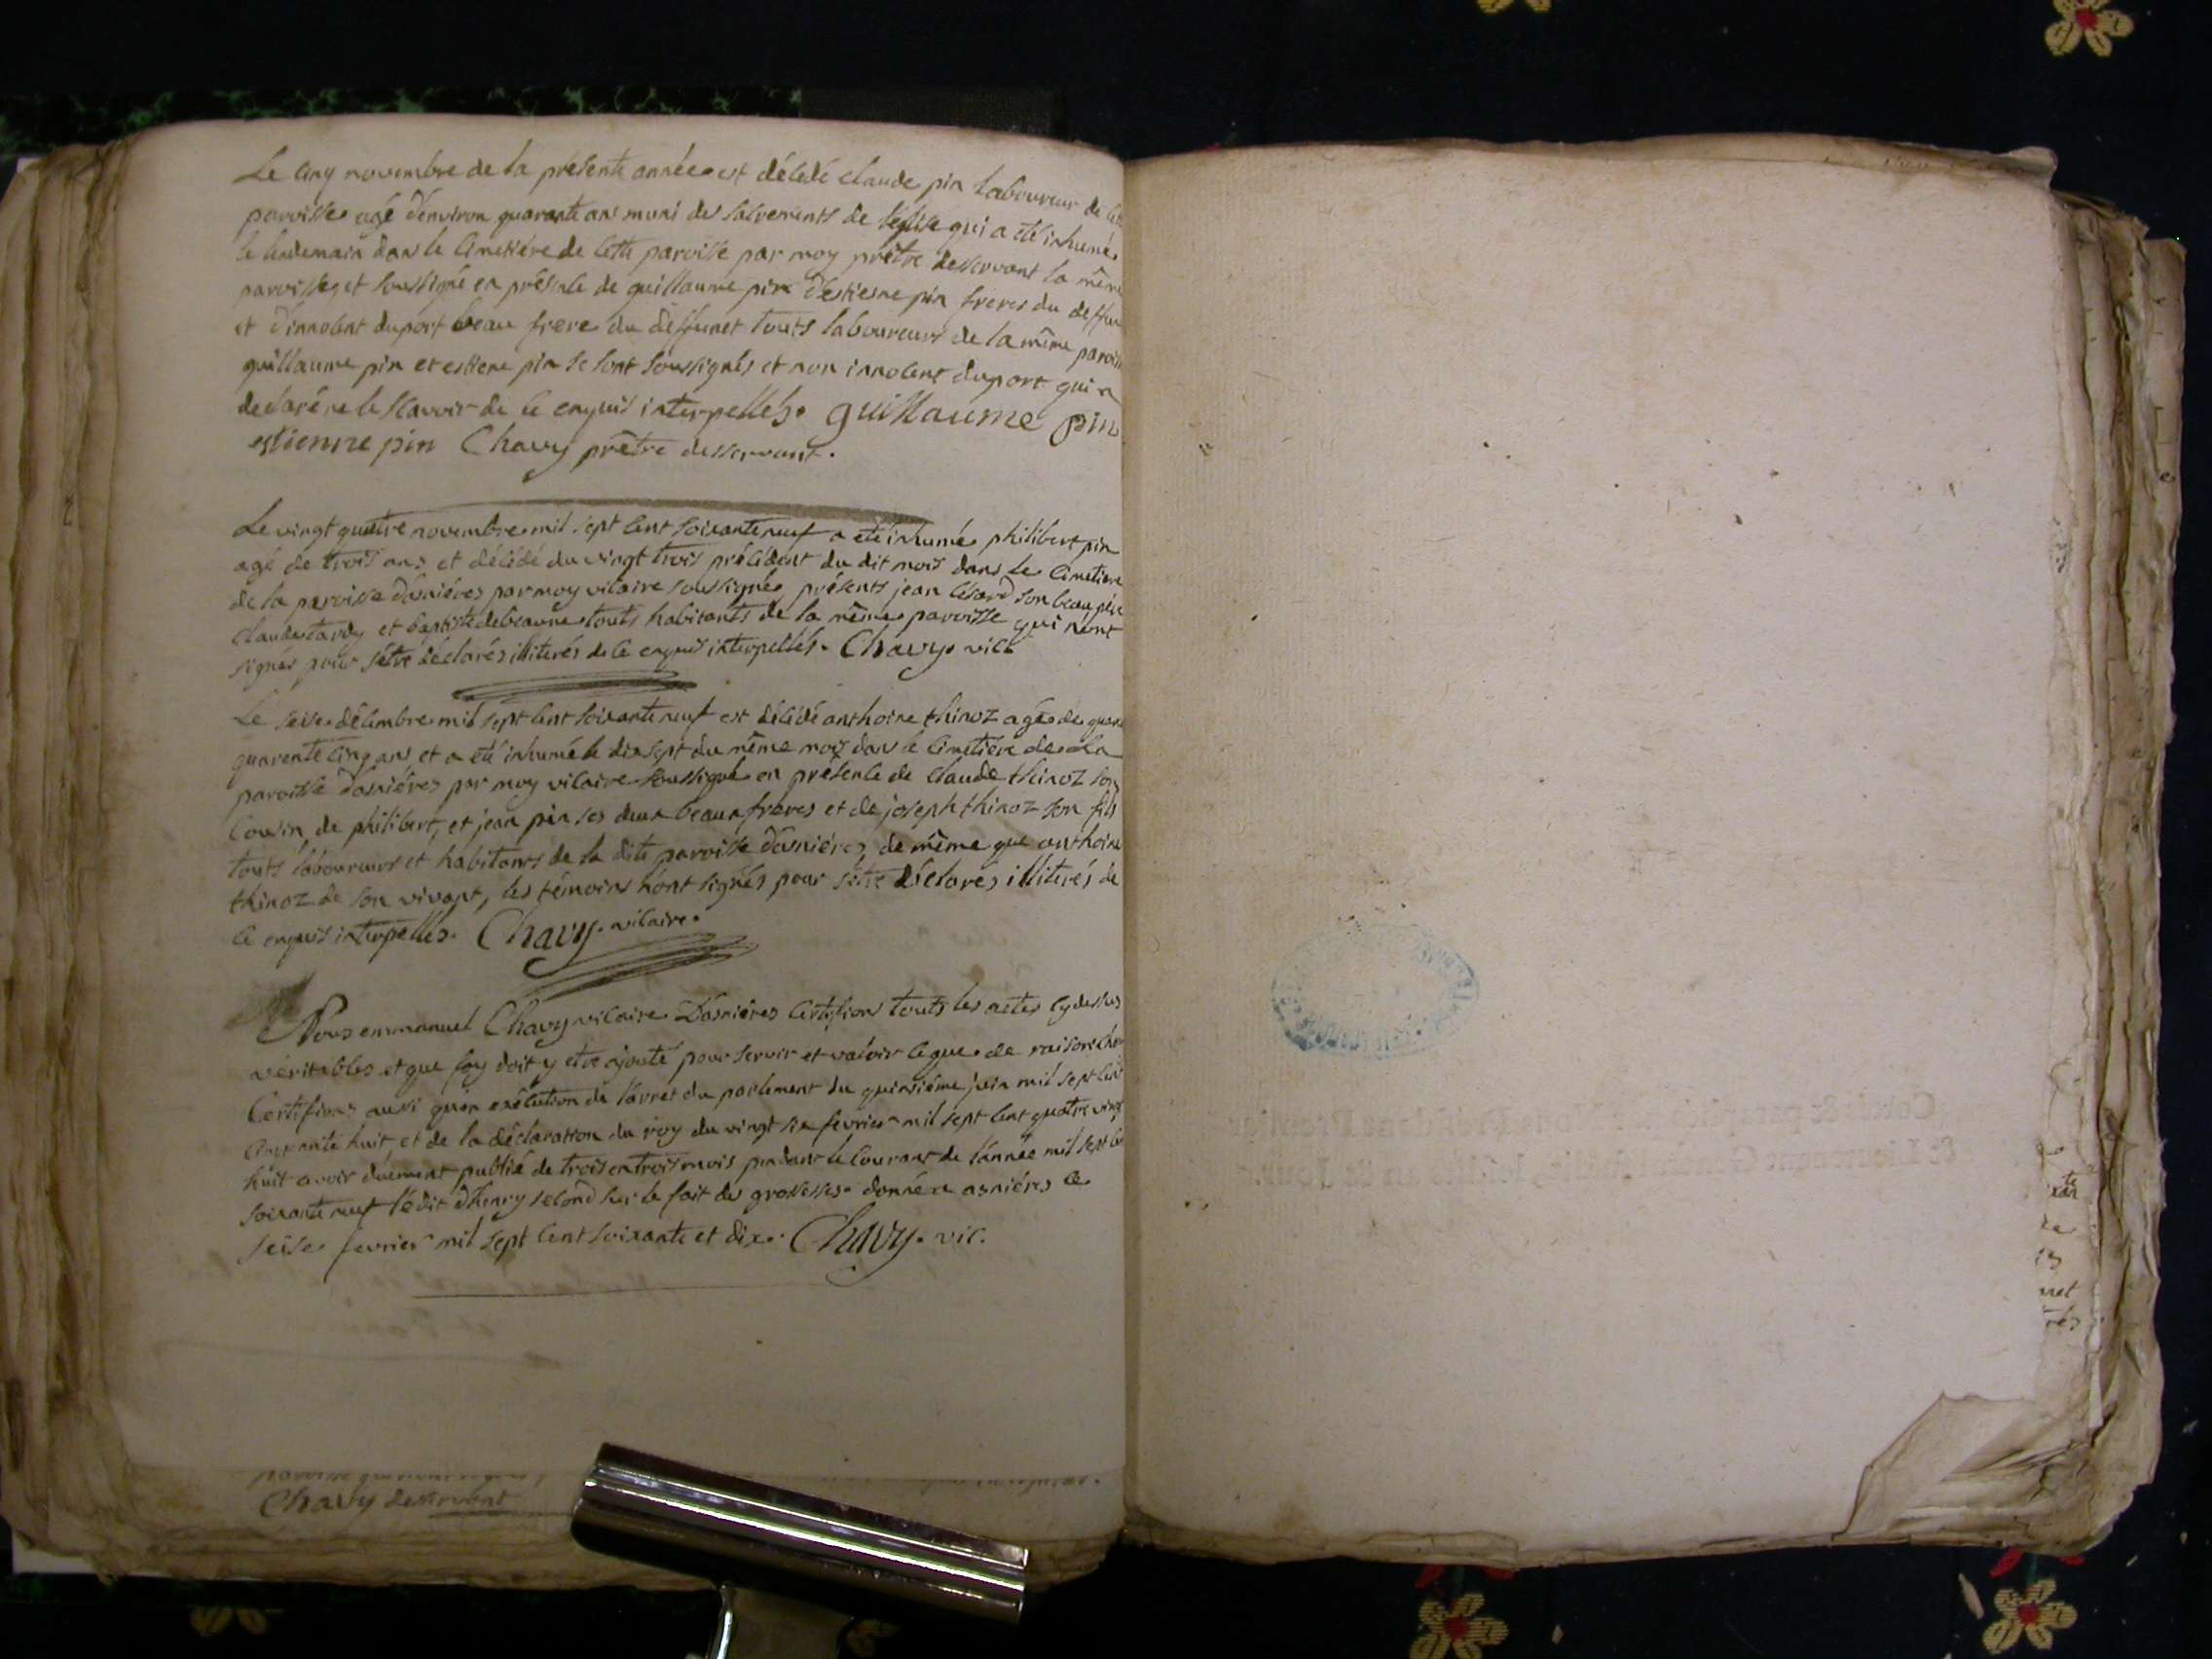 Le cinq novembre de la presente année est décédé claude pin laboureur de
paroisse agé d'environ quarante ans muni des sacrements de l'eglise qui a eté inhumé
le lendemain dans le cimetiére de cette paroisse par moy prêtre desservant la même
paroisse et soussigné en présence de guillaume pin d'estiene pin freres du deffun
et d'innocent duport beau frere du deffunct touts laboureurs de la même paroiss
guillaume pin et estiene pin se sont soussignés et non innocent duport qui a
declaré ne le scavoir de ce enquis interpellés. guillaume pin
estienne pin Chavy prêtre desservant.
Le vingt quatre novembre mil sept cent soixante neuf a eté inhumé philibert pin
agé de trois ans et décédé du vingt trois précédent du dit mois dans le cimetiere
de la paroisse d'asniéres par moy vicaire soussigné présents jean son beau pére
claude tardy et baptiste debeaune touts habitants de la même paroisse qui n'ont
signés pour s'être déclarés illiterés de ce enquis interpellés. Chavy. vic
Le seise décembre mil sept cent soixante neuf est décédé anthoine thinoz agé de quare
quarente cinq ans et a eté inhumé le dix sept du même mois dans le cimetiére de la
paroisse d'asniéres par moy vicaire soussigné en présence de claude thinoz son
cousin, de philibert, et jean pin ses deux beaux fréres et de joseph thinoz son fils
touts laboureurs et habitants de la dite paroisse d'asniéres, de même que anthoine
thinoz de son vivant, les témoins n'ont signés pour s'être déclarés illiterés de
ce enquis interpellés. Chavy. vicaire.
Nous emmanuel Chavy vicaire D'asniéres certifions touts les actes cy dessus
véritables et que foy doit y etre ajouté pour servir et valoir ce que de raison
Certifions aussi qu'en exécution de l'arret du parlement du quinsiéme juin mil sept cent
cinquante huit, et de la déclaration du roy du vingt six fevrier mil sept cent quatre vingt
huit avoir duement publié de trois en trois mois pendant le courant de l'année mil sept cen
soixante neuf l'édit d'henry second sur le fait des grossesses. donné a asniéres ce
seise fevrier mil sept cent soixante et dix. Chavy. vic.
Chavy desservant